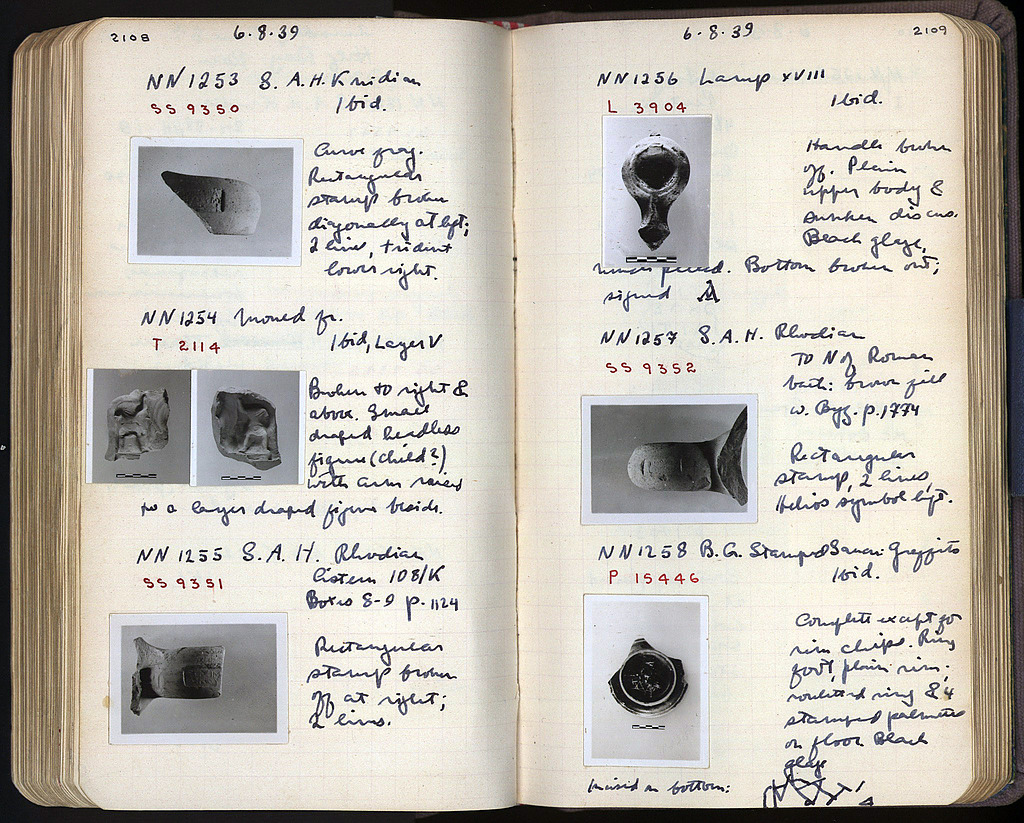 2108
6·8·39
NN 1253 S. A. H. Knidian
SS 9350
Ibid.
Curve frag.
Rectangular
stamp broken
diagonally at left;
2 lines, trident
lower right.
NN 1254 Mould fr.
T 2114
Ibid, Layer V
Broken to right &
above. Small
draped headless
figure (child?)
with arm raised
to a larger draped figure beside.
NN 1255 S. A. H. Rhodian
SS 9351
Cistern 108/K
Boxes 8-9 p. 1124
Rectangular
stamp broken
off at right;
2 lines.
2109
6·8·39
NN 1256 Lamp XVIII
L 3904
Ibid.
Handle broken
off. Plain
upper body &
sunken discus.
Black glaze,
Bottom broken out;
signed A
NN 1257 S. A. H. Rhodian
SS 9352
To N of Roman
bath: brown fill
w. Byz. p. 1774
Rectangular
stamp, 2 lines,
Helios symbol left.
NN 1258 B. G. Stamped Graffito
P 15446
Ibid.
Complete except for
rim chips. Ring
foot, plain rim;
rouletted ring & 4
stamped palmettes
on floor Black
glaze
Incised on bottom: